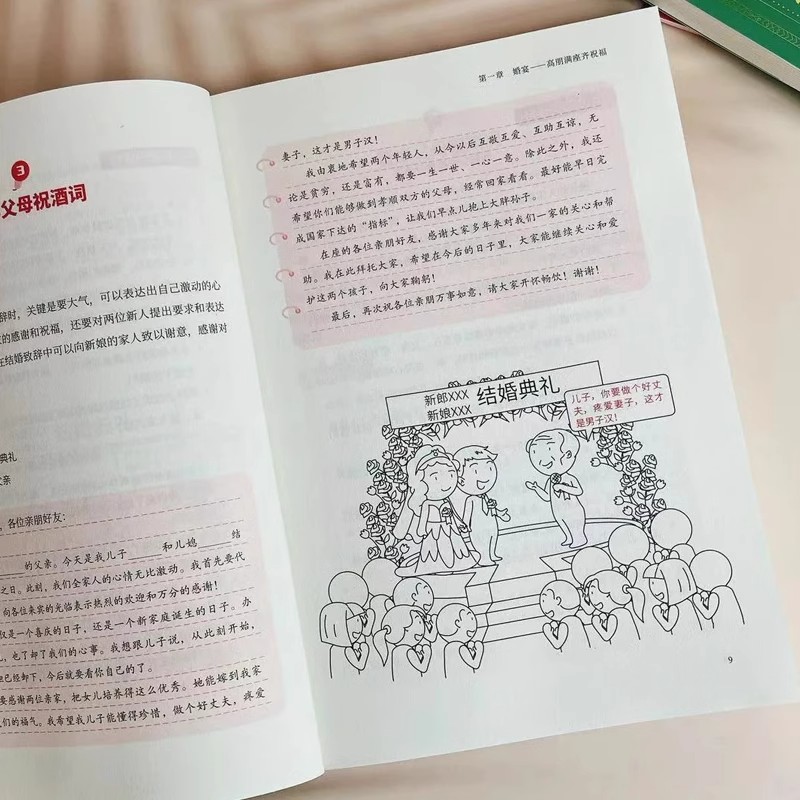 3
父母祝酒词
辞时，关键是要大气，可以表达出自己激动的心
的感谢和祝福，还要对两位新人提出要求和表达
在结婚致辞中可以向新娘的家人致以谢意，感谢对
典礼
父亲
，各位亲朋好友：
的父亲。今天是我儿子______和儿媳______结
之日。此刻，我们全家人的心情无比激动。我首先要代
向各位来宾的光临表示热烈的欢迎和万分的感谢！
仅是一个喜庆的日子，还是一个新家庭诞生的日子。办
，也了却了我们的心事。我想跟儿子说，从此刻开始，
担已经卸下，今后就要看你自己的了。
要感谢两位亲家，把女儿培养得这么优秀。她能嫁到我家
们的福气。我希望我儿子能懂得珍惜，做个好丈夫，疼爱
第一章 婚宴——高朋满座齐祝福
妻子，这才是男子汉！
我由衷地希望两个年轻人，从今以后互敬互爱、互助互谅，无
论是贫穷，还是富有，都要一生一世、一心一意。除此之外，我还
希望你们能够做到孝顺双方的父母，经常回家看看。最好能早日完
成国家下达的“指标”，让我们早点儿抱上大胖孙子。
在座的各位亲朋好友，感谢大家多年来对我们一家的关心和帮
助。我在此拜托大家，希望在今后的日子里，大家能继续关心和爱
护这两个孩子，向大家鞠躬！
最后，再次祝各位亲朋万事如意，请大家开怀畅饮！谢谢！
新郎XXX
新娘XXX
结婚典礼
儿子，你要做个好丈
夫，疼爱妻子，这才
是男子汉！
9